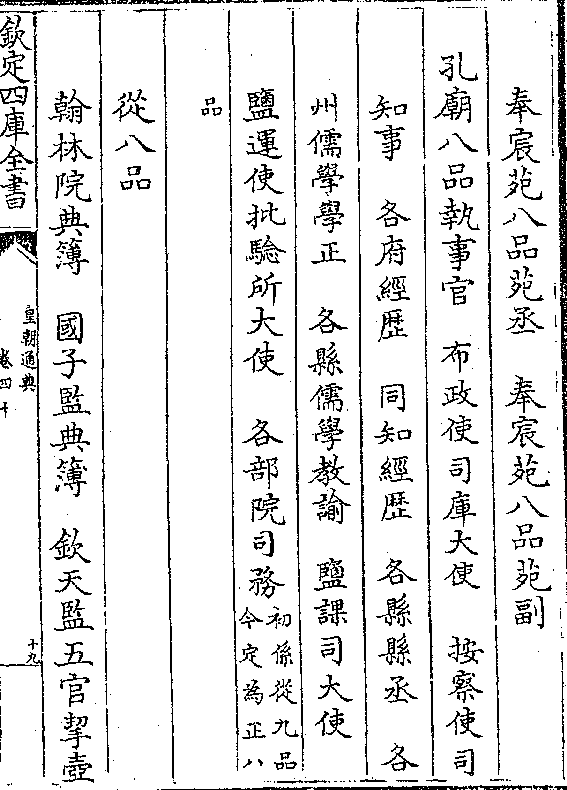 奉宸苑八品苑丞　奉宸苑八品苑副
孔廟八品執事官　布政使司庫大使　按察使司
知事　各府經歷　同知經歷　各縣縣丞　各
州儒學學正　各縣儒學教諭　鹽課司大使
鹽運使批驗所大使　各部院司務初係從九品今定為正八
品
從八品
翰林院典簿　國子監典簿　欽天監五官挈壺
欽定四庫全書
皇朝通典
卷四十
十九